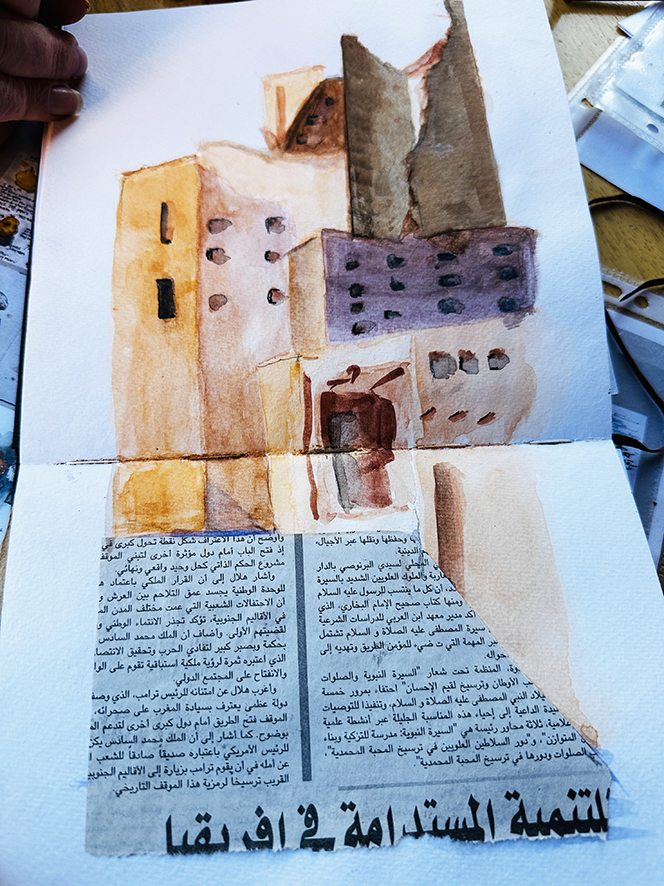 وحفظها ونقلها عبر الأجيال،
الدينية.
لسيدي البرنوصي بالدار
والملوك العلويين الشديد بالسيرة
أن كل ما ينتسب للرسول عليه السلام
ومنها كتاب صحيح الإمام البخاري، الذي
مدير معهد ابن العربي للدراسات الشرعية
سيرة المصطفى عليه الصلاة و السلام تشتمل
عبر المهمة التي ت ضيء للمؤمن الطريق وتهديه إلى
حواله.
المنظمة تحت شعار "السيرة النبوية والصلوات
الأوطان وترسيخ لقيم الإحسان" احتفاء بمرور خمسة
يلاد النبي المصطفى عليه الصلاة و السلام، وتنفيذا للتوصيات
الداعية إلى إحياء، هذه المناسبة الجليلة عبر أنشطة علمية
علامية، ثلاثة محاور رئيسة هي "السيرة النبوية: مدرسة للتزكية وبناء
المتوازن"، و"دور السلاطين العلويين في ترسيخ المحبة المحمدية"،
الصلوات ودورها في ترسيخ المحبة المحمدية".
وأوضح أن هذا الاعتراف شكل نقطة تحول كبرى في
إذ فتح الباب أمام دول مؤثرة أخرى لتبني الموقف
مشروع الحكم الذاتي كحل وحيد واقعي ونهائي.
وأشار هلال إلى أن القرار الملكي باعتماد
للوحدة الوطنية يجسد عمق التلاحم بين العرش
أن الاحتفالات الشعبية التي عمت مختلف المدن
في الأقاليم الجنوبية، تؤكد تجذر الانتماء الوطني
لقضيتهم الأولى. وأضاف أن الملك محمد السادس
بحكمة وبصبر كبير لتفادي الحرب وتحقيق
الذي اعتبره ثمرة لرؤية ملكية استباقية تقوم على
والانفتاح على المجتمع الدولي.
وأعرب هلال عن امتنانه للرئيس ترامب، الذي
دولة عظمى يعترف بسيادة المغرب على صحرائه،
الموقف فتح الطريق أمام دول كبرى أخرى لتدعم
بوضوح. كما أشار إلى أن الملك محمد السادس
للرئيس الأمريكي باعتباره صديقاً صادقاً للشعب
عن أمله في أن يقوم ترامب بزيارة إلى الأقاليم
القريب ترسيخا لرمزية هذا الموقف التاريخي.
للتنمية المستدامة في إفريقيا